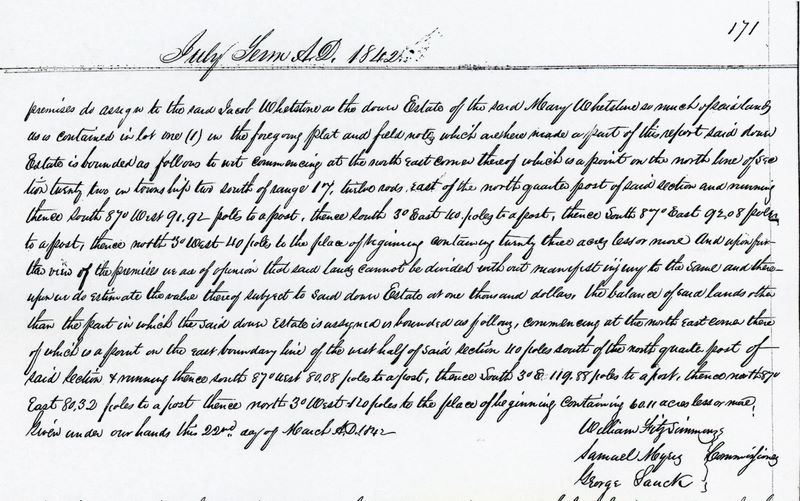 171
July Term A.D. 1842
premises do assign to the said Jacob Whetstine as the dower Estate of the said Mary Whetstine so much of said lands
as is contained in lot one (1) in the foregoing plat and field notes which are here made a part of this report said dower
Estate is bounded as follows to wit commencing at the north East corner thereof which is a point on the north line of Sec
tion twenty two in township two south of range 17, twelve rods, East of the north quarter post of said section and running
thence South 87° West 91,92 poles to a post, thence south 3° East 40 poles to a post, thence South 87° East 92,08 poles
to a post, thence north 3° West 40 poles to the place of beginning containing twenty three acres less or more And upon fur
the view of the premises we are of opinion that said lands cannot be divided without manifest injury to the same and there
upon we do estimate the value thereof subject to said dower Estate at one thousand dollars, the balance of said lands other
than the part in which the said dower Estate is assigned is bounded as follows, commencing at the north East corner there
of which is a point on the East boundary line of the west half of said section 40 poles south of the north quarter post of
said section & running thence south 87° West 80,08 poles to a post, thence South 3° E 119.88 poles to a post, thence north 87°
East 80,32 poles to a post thence north 3° West 120 poles to the place of beginning containing 60.11 acres less or more,
Given under our hands this 22nd day of March A.D. 1842
William Fitz Simmons
Samuel Myers Commissioners
George Sauck